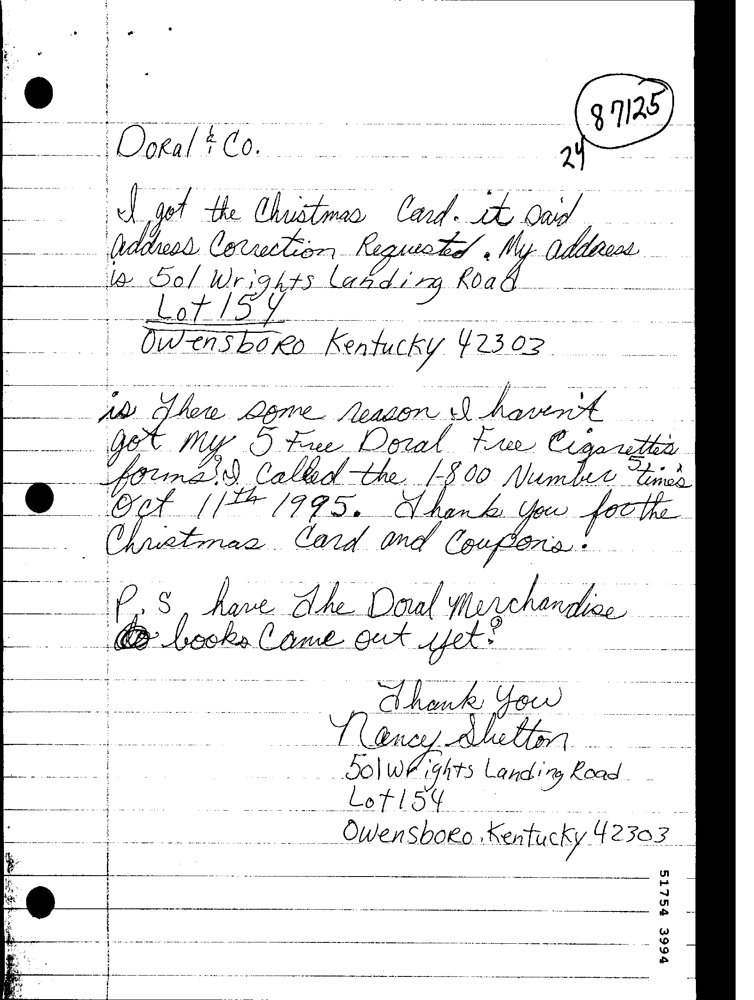 87125
24
Doral & Co.
I got the Christmas Card. it said
address Correction Requested. My address
is 501 Wrights Landing Road
Lot 154
Owensboro Kentucky 42303
is there some reason I haven't
got my 5 Free Doral Free Cigarette's
forms? I called the 1-800 Number 5 time's
Oct 11th 1995. Thank you for the
Christmas Card and Coupons.
P.S have the Doral Merchandise
books Came out yet?
Thank You
Nancy Shelton
501 Wrights Landing Road
Lot 154
Owensboro, Kentucky 42303
51754 3994